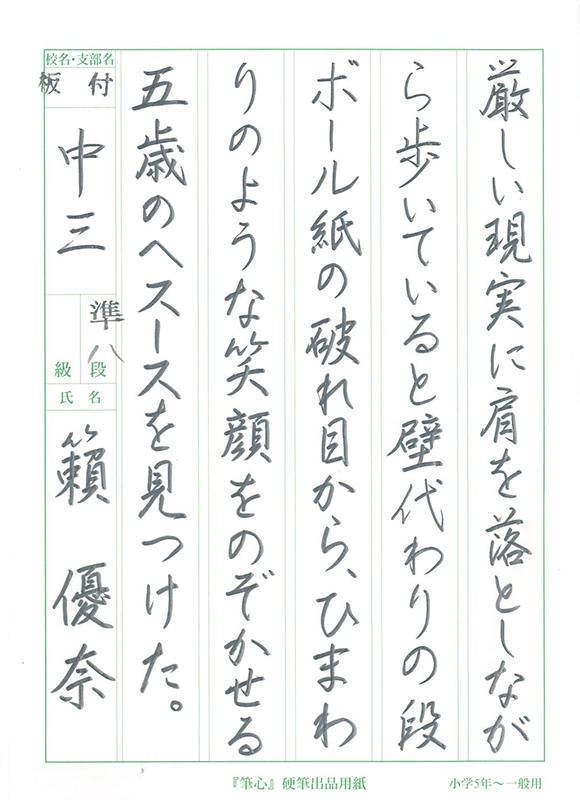 厳しい現実に肩を落としなが
ら歩いていると壁代わりの段
ボール紙の破れ目から、ひまわ
りのような笑顔をのぞかせる
五歳のヘスースを見つけた。
校名・支部名
板付
中三
準八
段
級
氏名
籟 優奈
『筆心』硬筆出品用紙
小学5年～一般用